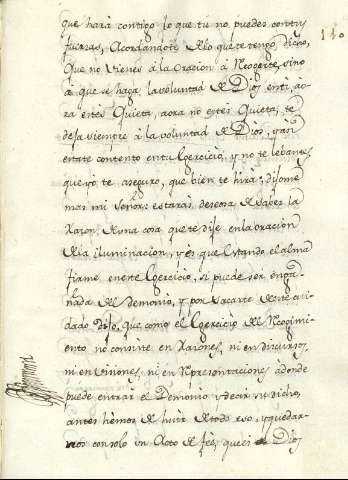 110
que hará contigo lo que tu no puedes con tus
fuerzas, Acordandote de lo que te tengo dicho,
Que no vienes á la oracion á Recogerte, sino
á que se haga la voluntad de Dios en ti, ao-
ra estés Quieta, aora no estés Quieta; te
deja siempre á la voluntad de Dios, y asi
estate contento en tu Egercicio, y no te lebantes,
que yo te aseguro, que bien te hirá: dijome
mas mi señor: estarás deseosa de saber la
Raion, de una cosa que te dije en la oración
de la iluminacion, y és que Estando el alma
firme en este Egercicio, si puede ser enga-
ñada del Demonio, y por sacarte de este cui-
dado Digo, que como el Egercicio del Recogimi-
ento no consiste en Raiones, ni en discursos,
ni en visiones, ni en Representaciones adonde
puede entrar el Demonio, y decir su dicho,
antes hemos de huir de todo eso, y quedar-
nos con solo un Acto de feé, que es Dios